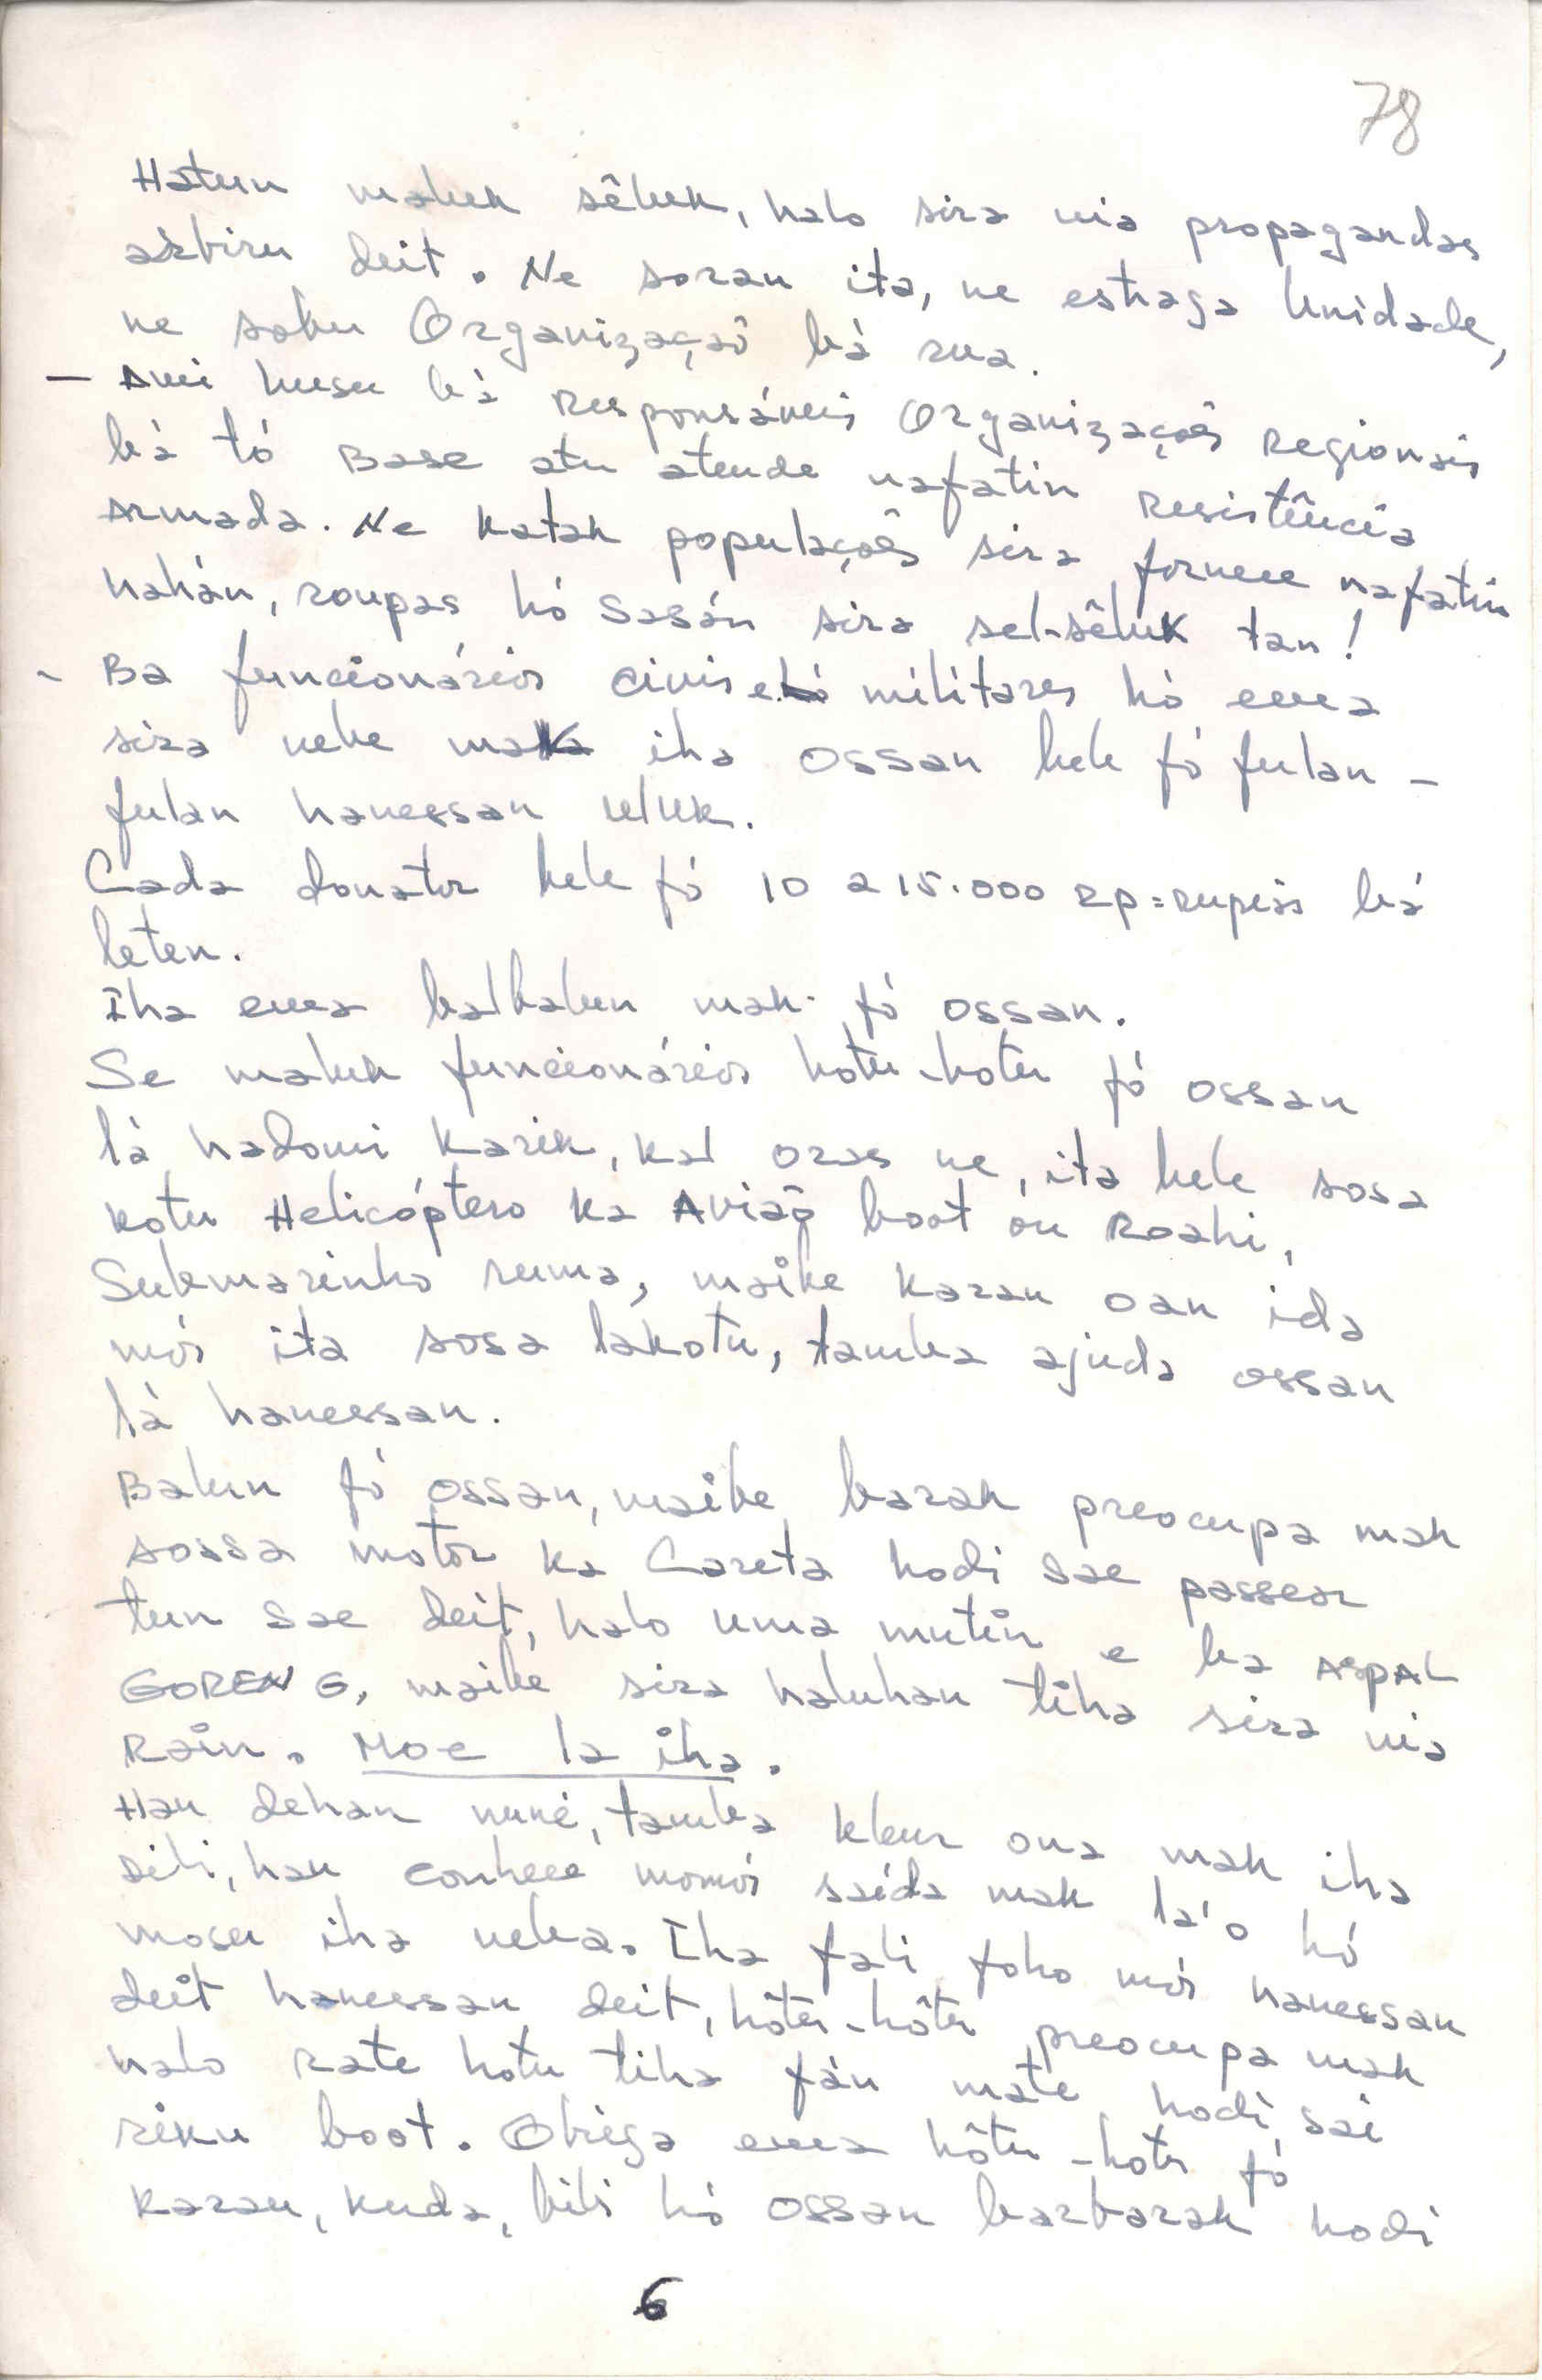 78
Hatun maluk sêluk, halo sira nia propagandas
arbiru deit. Ne soran ita, ne estraga Unidade,
ne sobu Organizaçaõ bá rua.
- Ami husu bá Responsáveis Organizações Regionais
bá tó Base atu atende nafatin Resistência
Armada. Ne katak populações sira fornece nafatin
hahán, roupas hó Sasán sira sel-sêluk tan!
- Ba funcionários civis e militares hó ema
sira nebe mak iha ossan bele fó fulan -
fulan hanessan uluk.
Cada donator bele fó 10 a 15.000 RP=rupias bá
leten.
Iha ema balbalun mak fó ossan.
Se maluk funcionários hotu-hotu fó ossan
lá hadomi karik, kal oras ne, ita bele sosa
hotu Helicóptero ka Aviaõ boot ou Roahi,
Submarinho ruma, maibe karau oan ida
mós ita sosa lakotu, tamba ajuda ossan
lá hanessan.
Balun fó ossan, maibe barak preocupa mak
sossa motor ka Careta hodi sae passear
tun sae deit, halo uma mutin e ba AspAL
GORENG, maibé sira haluhan tiha sira nia
Rain. Moe la iha.
Hau dehan nuné, tamba kleur ona mak iha
sili, hau conhece momós saida mak la'o hó
mosu iha neba. Iha fali foho mós hanessan
deit hanessan deit, hôtu-hôtu preocupa mak
halo rate hotu tiha fán mate hodi sai
riku boot. Obriga ema hôtu-hotu fó
karau, kuda, bibi hó ossan barbarak hodi
6